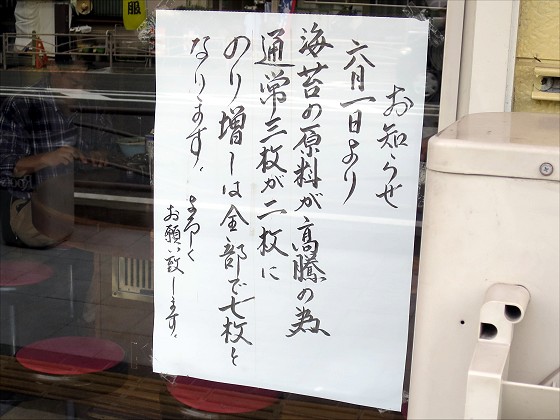 お知らせ
六月一日より
海苔の原料が高騰の為
通常三枚が二枚に
のり増しは全部で七枚と
なります。
よろしく
お願い致します。
服